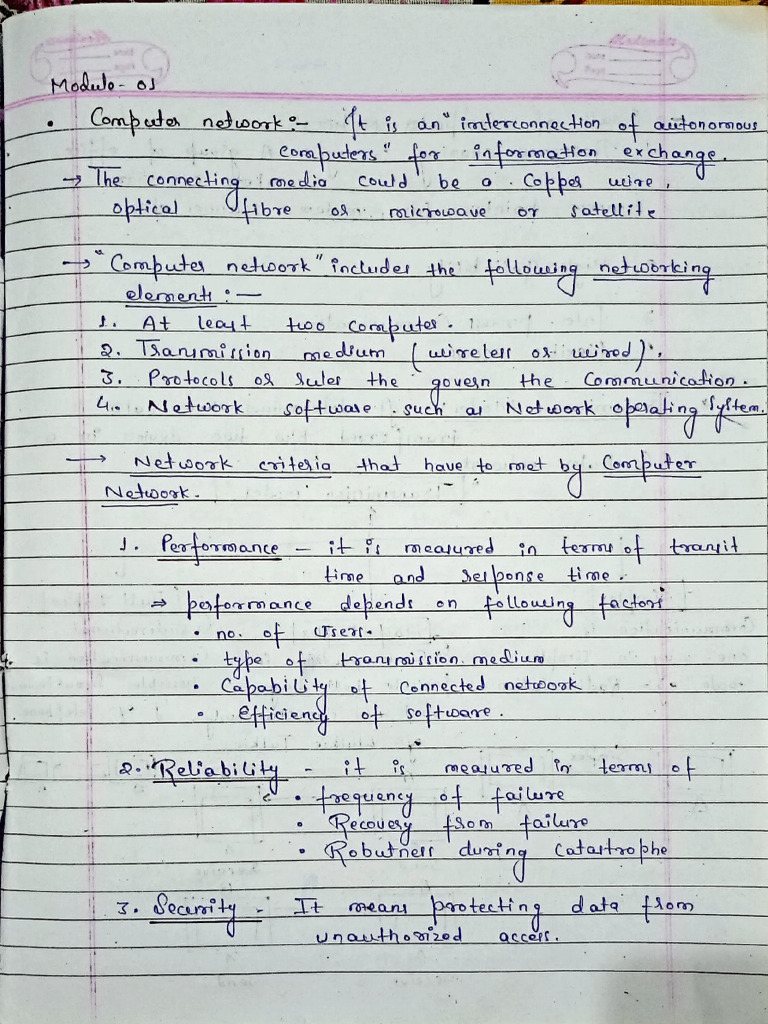 Module-01
• Computer network:- It is an "interconnection of autonomous
computers" for information exchange.
→ The connecting media could be a copper wire,
optical fibre or microwave or satellite
→ "Computer network" includes the following networking
elements:—
1. At least two computer.
2. Transmission medium (wireless or wired).
3. Protocols or rules the govern the Communication.
4. Network software such as Network operating system.
→ Network criteria that have to met by Computer
Network.
1. Performance - it is measured in terms of transit
time and response time.
⇒ performance depends on following factors
• no. of Users.
• type of transmission medium
• Capability of Connected network
• Efficiency of software.
2. Reliability - it is measured in terms of
• frequency of failure
• Recovery from failure
• Robutness during Catastrophe
3. Security - It means protecting data from
unauthorized access.